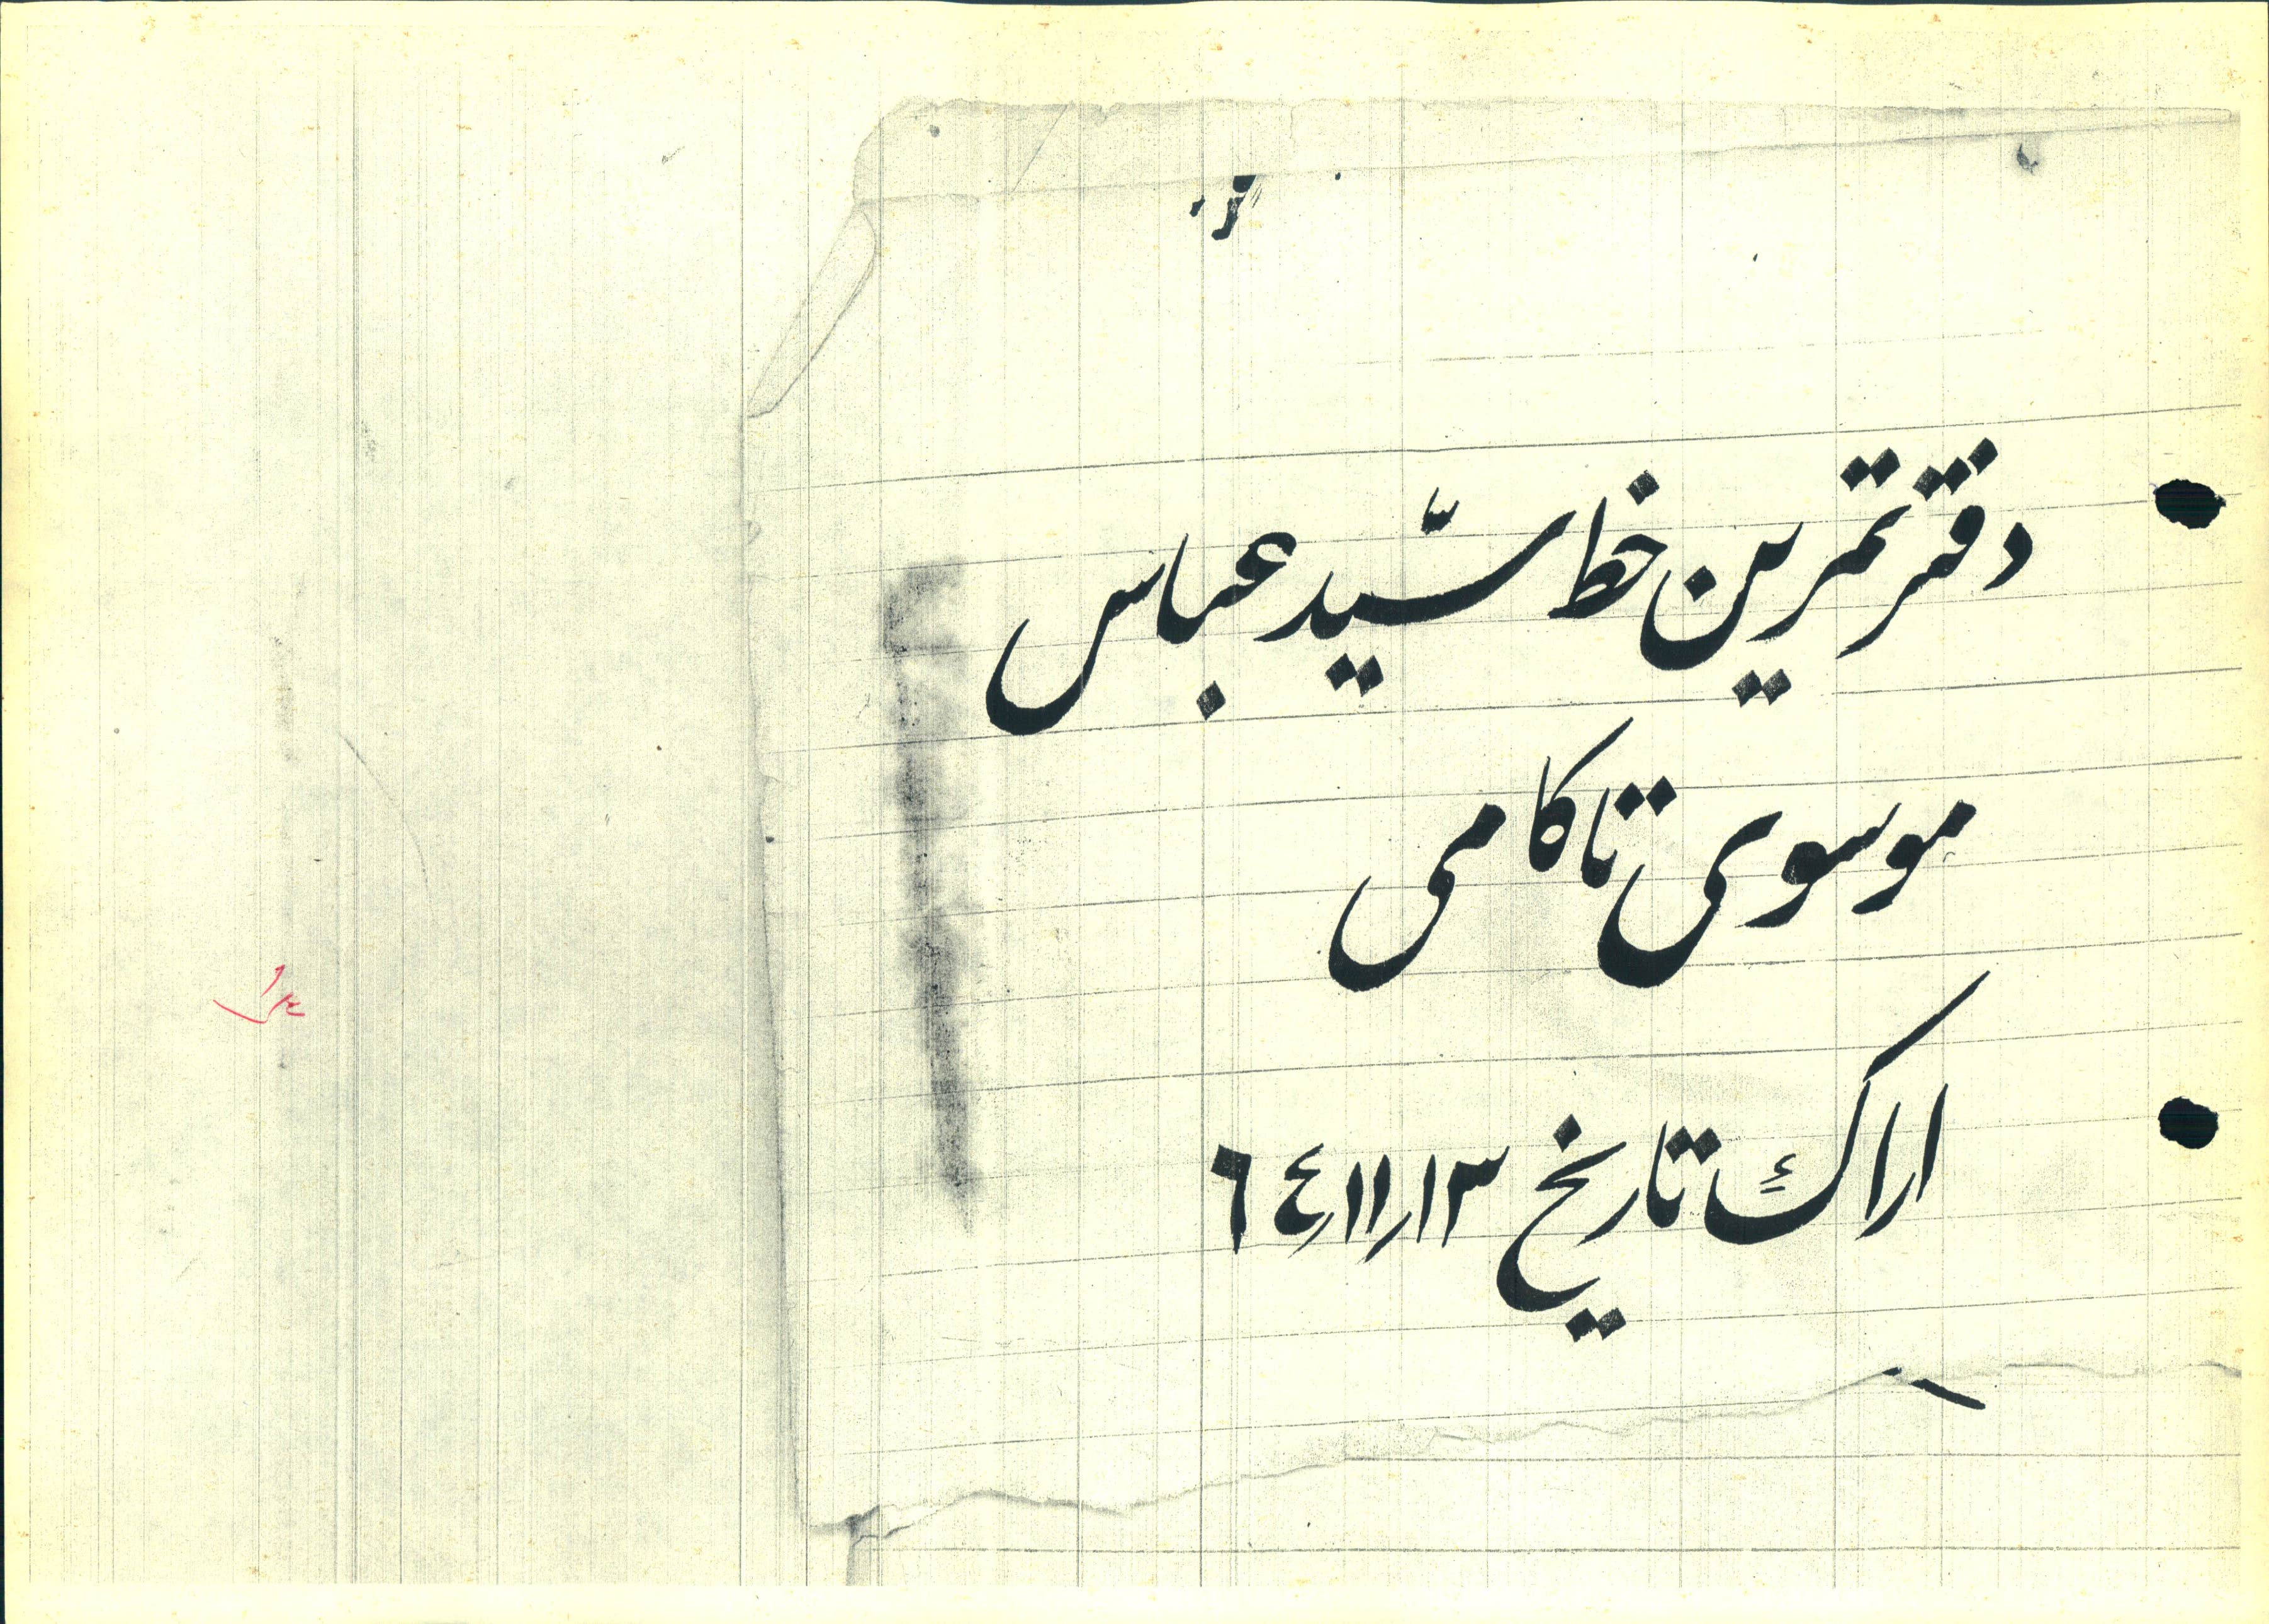 دفتر تمرین خط سّید عباس
موسوی تاکامی
اراك تاریخ ۱۳ر۱۱ر٦٤